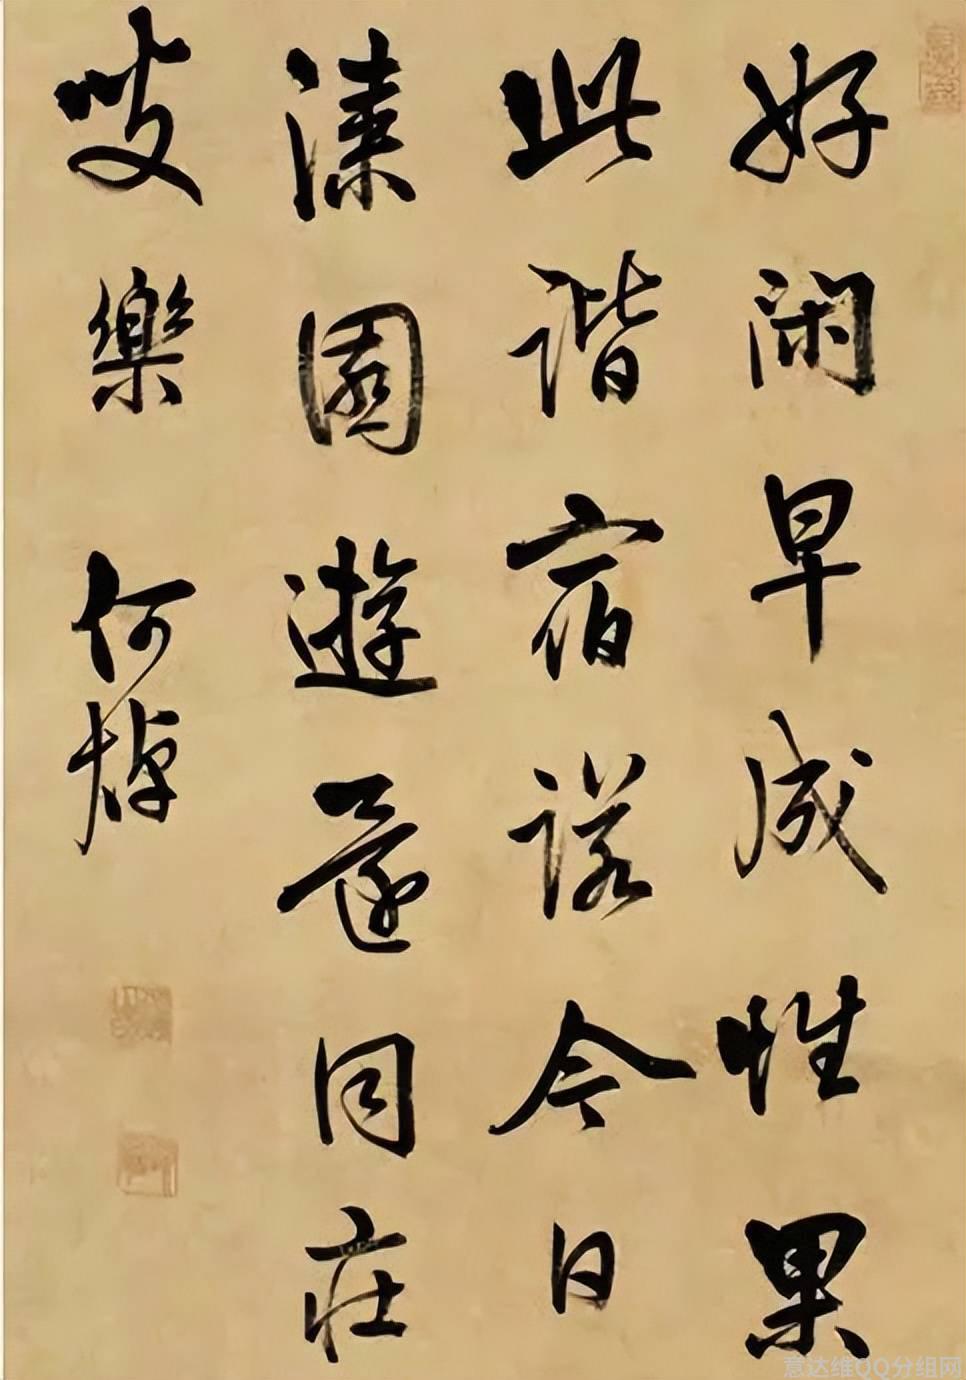 好閑早成性果
此諧宿諾今日
漆園遊還同庄
叟樂 何焯
意达维QQ分组网